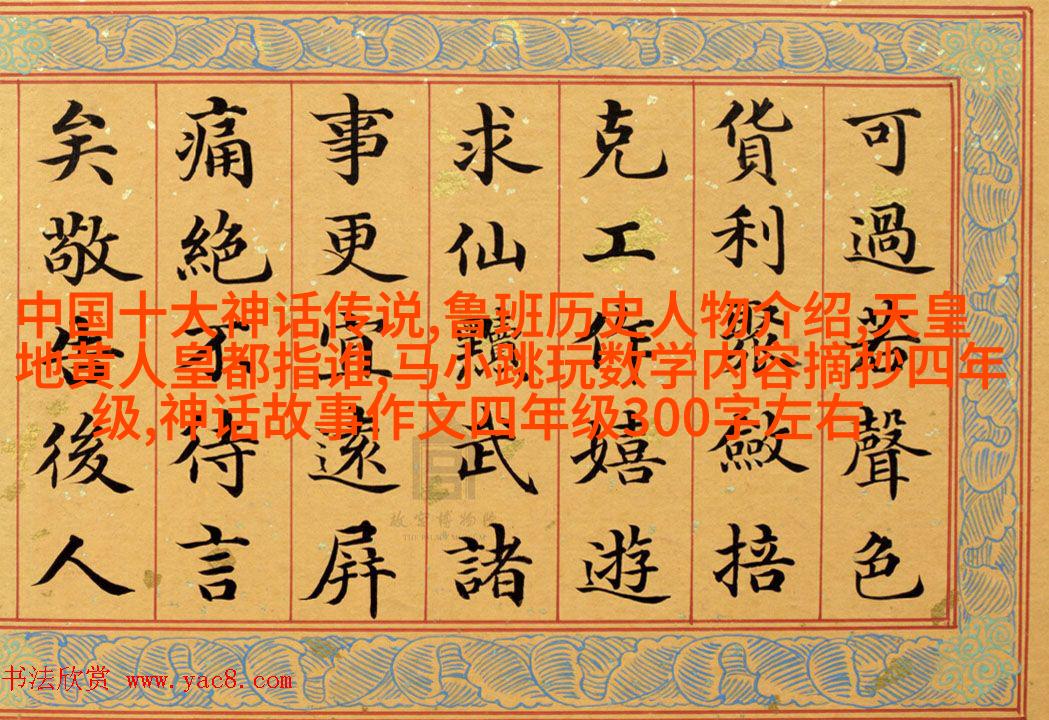 可過若聲色
貨利聚斂掊
克工作嬉遊
求仙黷武諸
事更宜遠屏
痛絕不待言
矣敬告後人
中国十大神话传说,鲁班历史人物介绍,天皇
地黄人皇都指谁,马小跳玩数学内容摘抄四年
级,神话故事作文四年级300字左右
故宫博物院
THE PALACE MUSEUM
书法欣赏 www.yac8.com